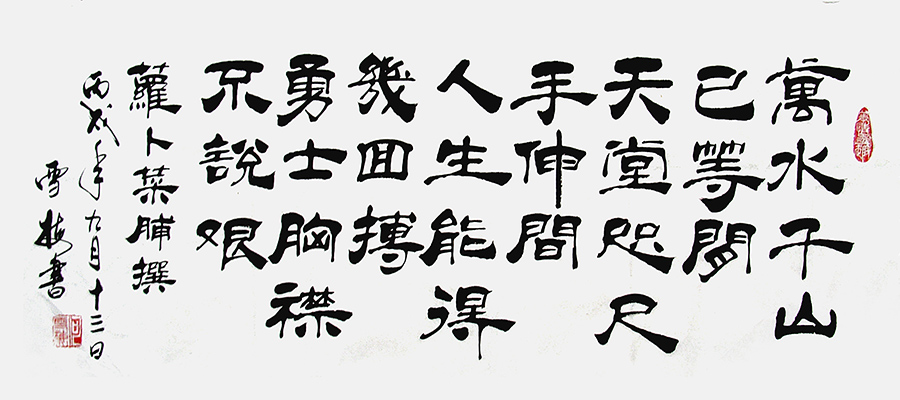 萬水千山
已等閒
天堂咫尺
手伸間
人生能得
幾回搏
勇士胸襟
不說艰
蘿卜菜脯撰
丙戌年九月十三日
雪梅書